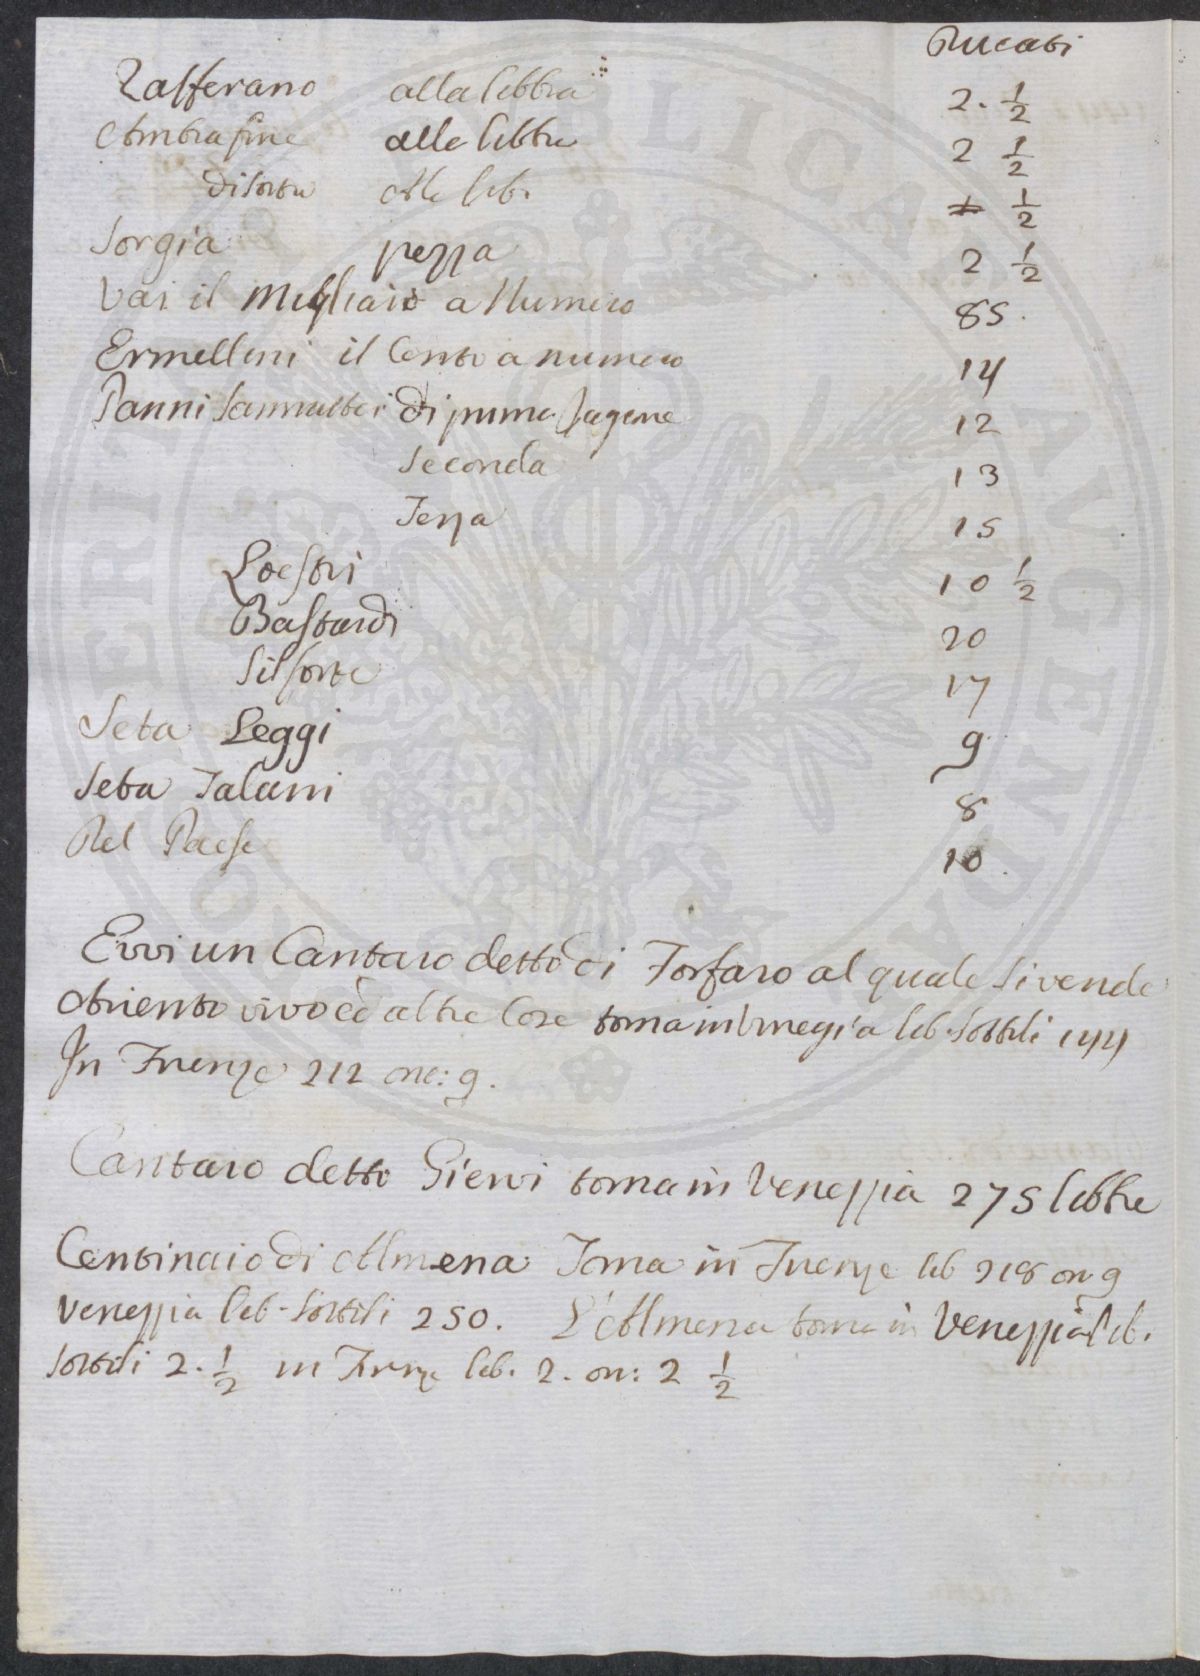 Ducati
Zafferano alla libbra 2. ½
Ambra fine alla libbra 2 ½
di sorta alla lib. ½
Sorgia pezza 2 ½
Vai il Migliaio a Numero 85.
Ermellini il Cento a numero 14
Panni di prima ragione 12
Seconda 13
Terza 15
Loesti 10 ½
Bastardi 20
Silforte 17
Seta Leggi 9
Seta Talani 8
Del Paese 10
Evvi un Cantaro detto di Forfaro al quale si vende
Ariento vivo ed altre Cose torna in Vinegia lib. sottili 144
In Firenze 212 onc: 9.
Cantaro detto Giervi torna in Venezzia 275 libbre
Centinaio di Almena Torna in Firenze lib 218 on 9
Venezzia lib. Sottili 250. L'Almena torna in Venezzia lib.
sottili 2. ½ in Firenze lib. 2. on: 2 ½
PVBLICAE AVGENDA ERIT